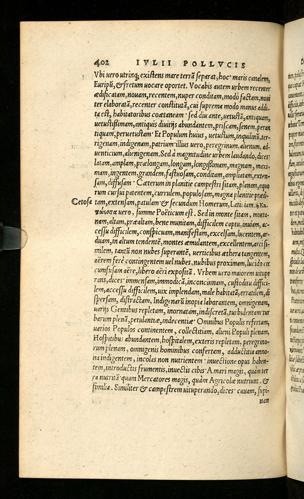 402 IVLII POLLVCIS
Vbi uero utrinq; existens mare terrā separat, hoc maris canalem,
Euripū, & fretum uocare oportet. Vocabis autem urbem recenter
ædificatam, nouam, recentem, nuper conditam, modò factam, noui
ter elaboratā, recenter constitutā, cui suprema modo manus addi
ta est, habitatoribus coætaneam: sed diu ante, uetustā, antiquam,
uetustissimam, antiquis diuitijs abundantem, priscam, senem, peran
tiquam, peruetustam: Et Populum huius, uetustum,
rigenam, indigenam, patrium: illius uero, peregrinum, alienum, ad
uenticium, alienigenam. Sed à magnitudine urbem laudando, dices:
latam, amplam, prælongam, longam, longissimam, magnam, maxi
mam, ingentem, grandem, fastuosam, conditam, ampliatam, exten-
sam, diffusam: Cæterum in planitie campestri sitam, planam, equo
rum cursui patentem, currulem, populosam, magna planitie
Cetosa tam, extensam, patulam, & secundum Homerum, Latè iam.
uero, summe Poëticum est. Sed in monte sitam, monta-
nam, altam, præaltam, bene munitam, difficilem captu, inuiam, ac-
cessu difficilem, conspicuam, manifestam, excelsam, lucentem, ar-
duam, in altum tendentē, montes æmulantem, excellentem, arci si-
milem, tantū non nubes superantē, uerticibus æthera tangentem,
aërem ferè contingentem uel nubes, nubibus proximam, lucido cir
cumfusam aëre, libero aëri expositā. Vrbem uero maiorem uitupe
rans, dices: immensam, immodicā, inconcinnam, custoditu diffici-
lem, accessu difficilem, uix implendam, malè habitatā, errabilem, di
spersam, distractam. Indigenarū inopia laborantem, omnigenam,
uarijs Gentibus repletam, inornatam, indiscretā, turbulentam tur
barum plenā, petulantiæ, indecentiæ: Omnibus Populis refertam,
uarios Populos continentem, collectitiam, alieni Populi plenam,
Hospitibus abundantem, hospitalem, exteris repletam, peregrino-
rum plenam, omnigenis hominibus confertam, adductitia anno-
na indigentem, incolas non nutrientem: inuectione opus haben-
tem, introductis frumentis, inuectis cibis: A mari magis, quàm ter
ra nutritā: quam Mercatores magis, quàm Agricolæ nutriunt, &
similia. Similiter & campestrem uituperando, dices: cauam, supi-
nam